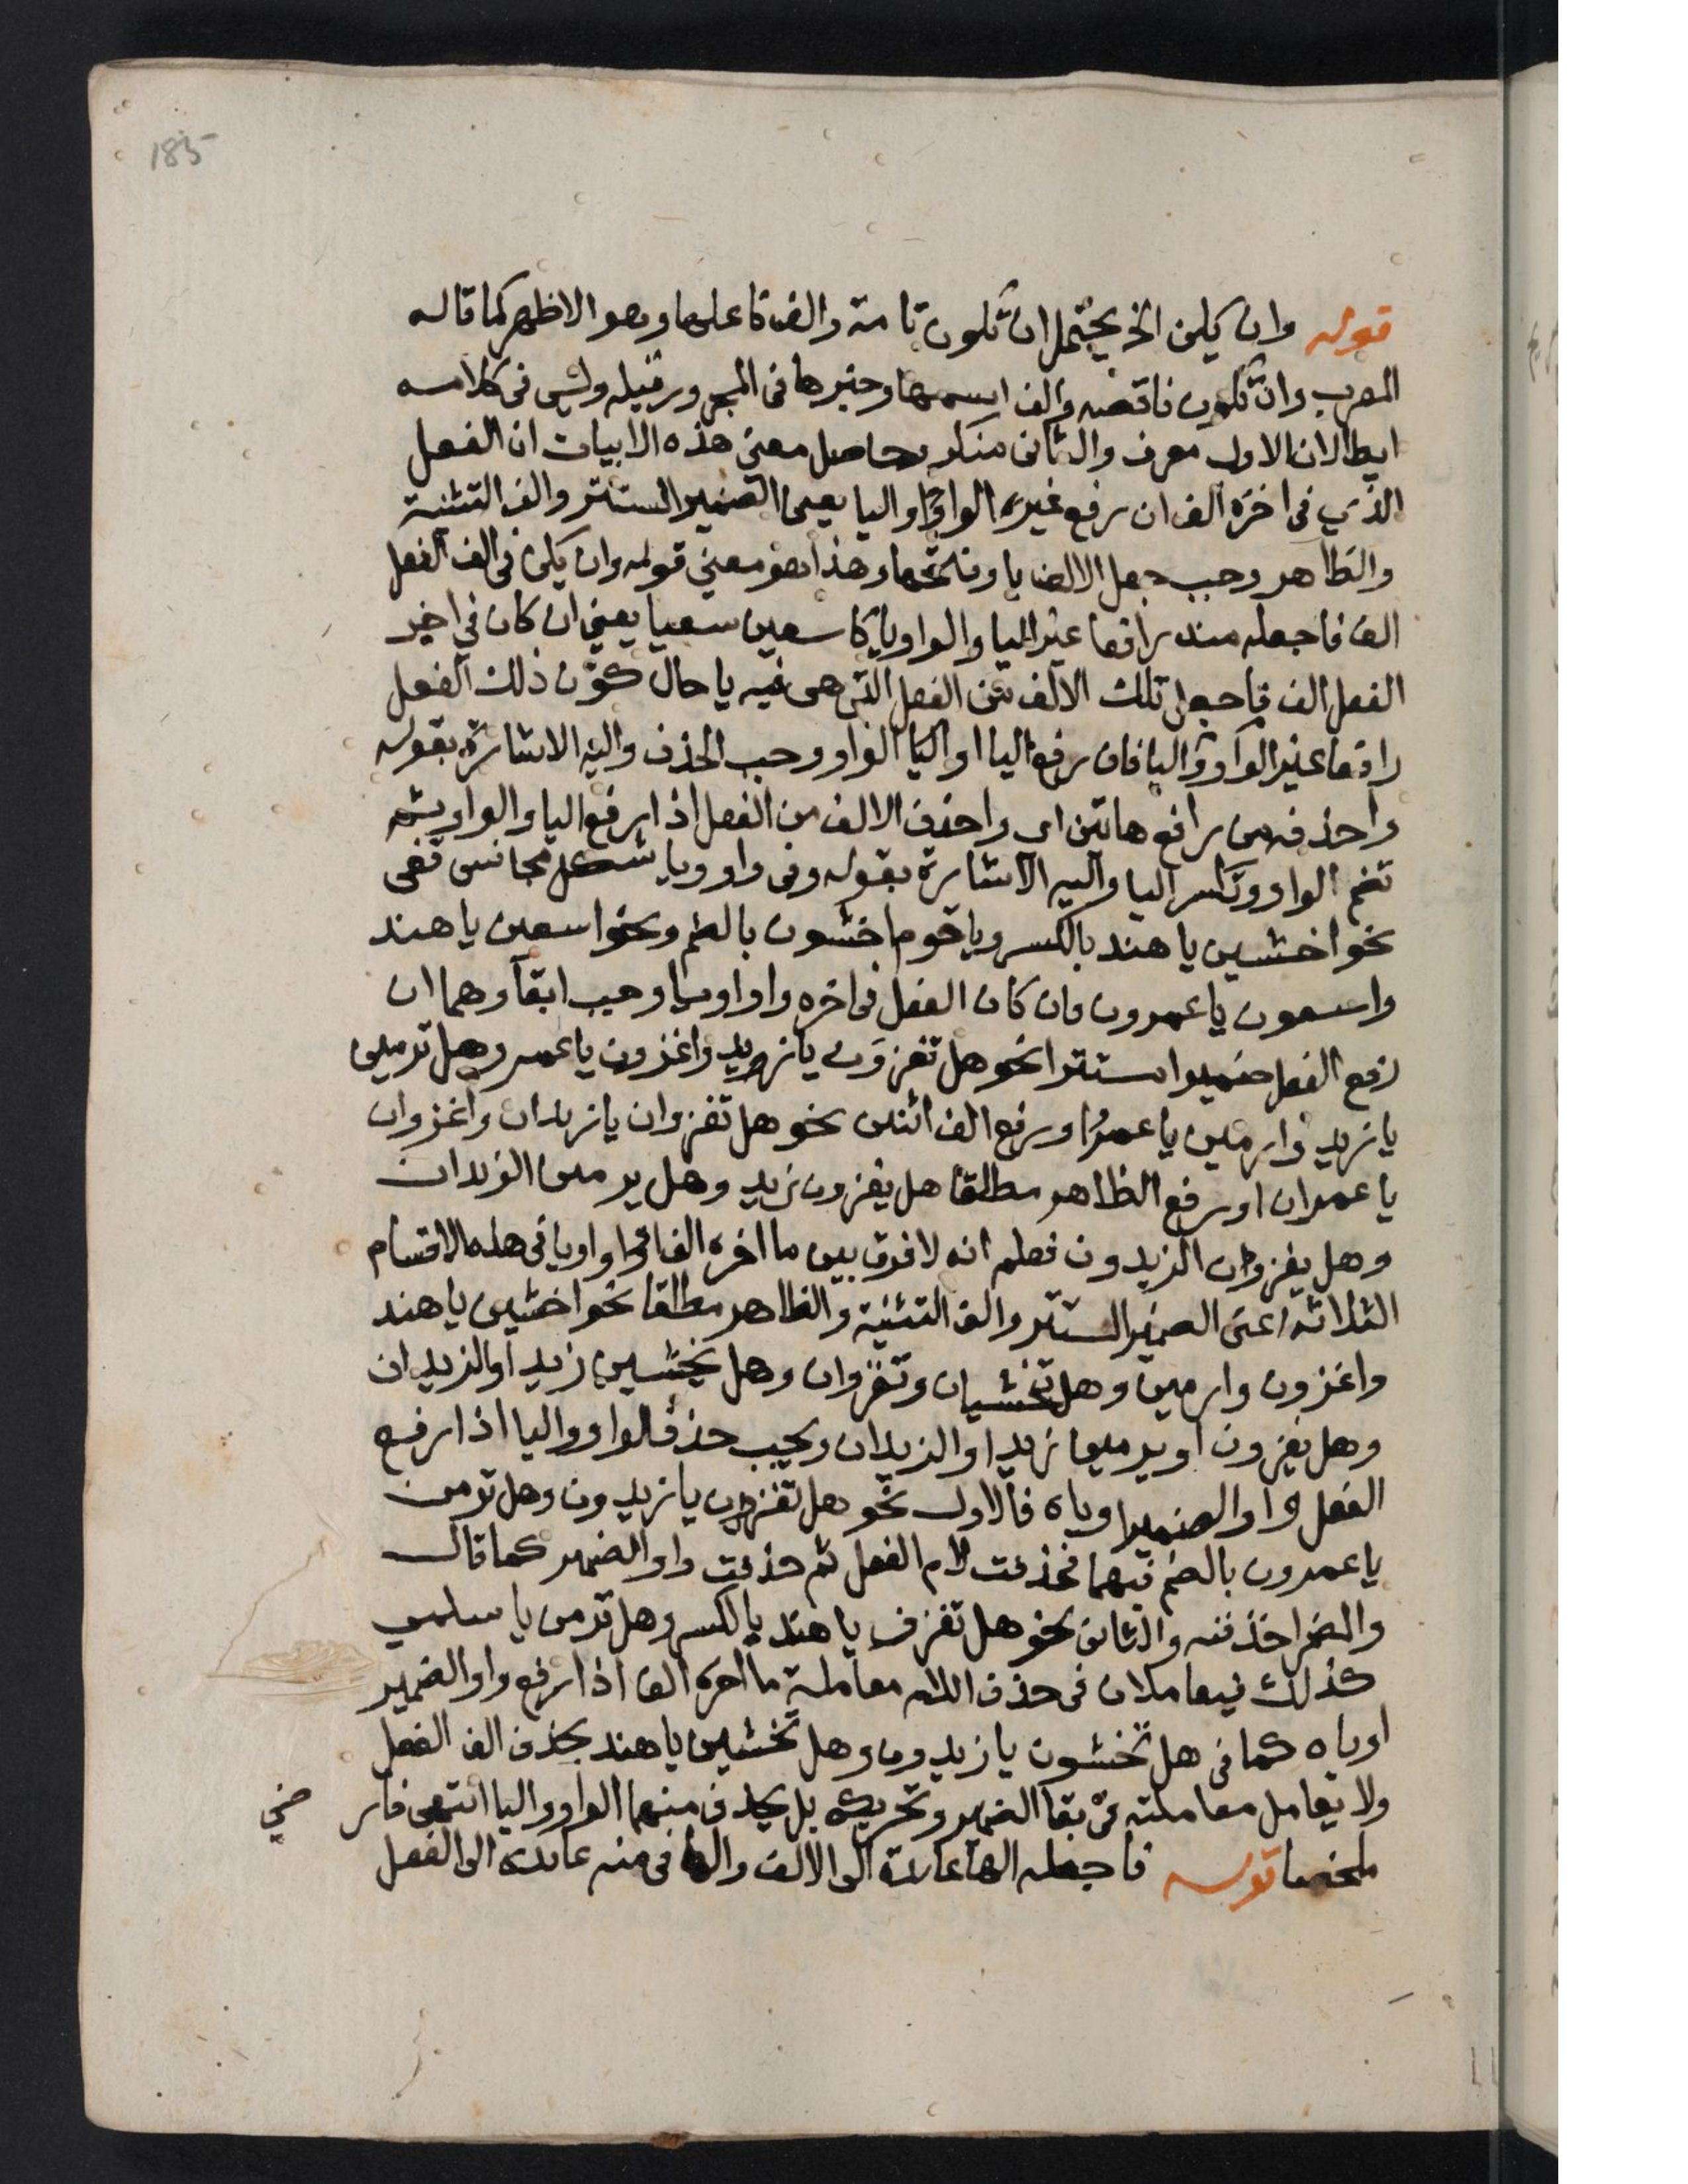 185
قوله وان يكن الخ يحتمل ان تكون تامة والف فاعلها وهو الاظهر كما قاله
المعرب وان تكون ناقصه والف اسمها وخبرها فى المجرور قبله وليس فى كلامه
ايطا لان الاول معرف والثانى منكر وحاصل معنى هذه الابيات ان الفعل
الذي فى اخره الف ان رفع غير الواو واليا يعنى الضمير المستتر والف التثنية
والظاهر وجب جعل الالف يا وفتحها وهذا هو معنى قوله وان يكن فى الف الفعل
الف فاجعله منه رافعا غير اليا والواو يا كاسعين سعيا يعني ان كان في اخير
الفعل الف فاجعل تلك الالف من الفعل التى هى فيه يا حال كون ذلك الفعل
رافعا غير الواو واليا فان رفع اليا او اليا الواو وجب الحذف واليه الاشارة بقوله
واحذفه من رافع هاتين اى واحذف الالف من الفعل اذا رفع اليا والواو ثم
تضم الواو وتكسر اليا واليه الاشارة بقوله وفى واو ويا شكل مجانس قفى
نحو اخشين يا هند بالكسر ويا قوم اخشون بالضم ونحو اسعين يا هند
واسعون يا عمرون وان كان الفعل فى اخره واو او يا وجب ابقاؤهما ان
رفع الفعل ضميرا مستترا نحو هل تغزون يا زيد واغزون يا عمر وهل ترمين
يا زيد وارمين يا عمرو او رفع الف اثنين نحو هل تغزوان يا زيدان واغزوان
يا عمران او رفع الظاهر مطلقا هل يغزون زيد وهل يرمين الزيدان
وهل يغزوان الزيدون فعلم انه لا فرق بين ما اخره الف او واو او يا فى هذه الاقسام
الثلاثة اعنى الضمير المستتر والف التثنية والظاهر مطلقا نحو اخشين يا هند
واغزون وارمين وهل تخشيان وتغزوان وهل يخشين زيد او الزيدان
وهل يغزون او يرمين زيد او الزيدان ويجب حذف الواو واليا اذا رفع
الفعل واو الضمير او ياه فالاول نحو هل تغزون يا زيدون وهل ترمن
يا عمرون بالضم فيهما فحذفت لام الفعل ثم حذفت واو الضمير كما قال
والضمر احذفنه والثانى نحو هل تغزن يا هند بالكسر وهل ترمن يا سلمى
كذلك فيعاملان فى حذف اللام معاملة ما اخره الف اذا رفع واو الضمير
او ياه كما فى هل تخشون يا زيدون وهل تخشين يا هند بحذف الف الفعل
ولا يعامل معاملته فى بقا الضمير وتحريكه بل يحذف منهما الواو واليا انتهى فار ضي
ملخصا قوله فاجعله الها عايدة الى الالف والها فى منه عايده الى الفعل